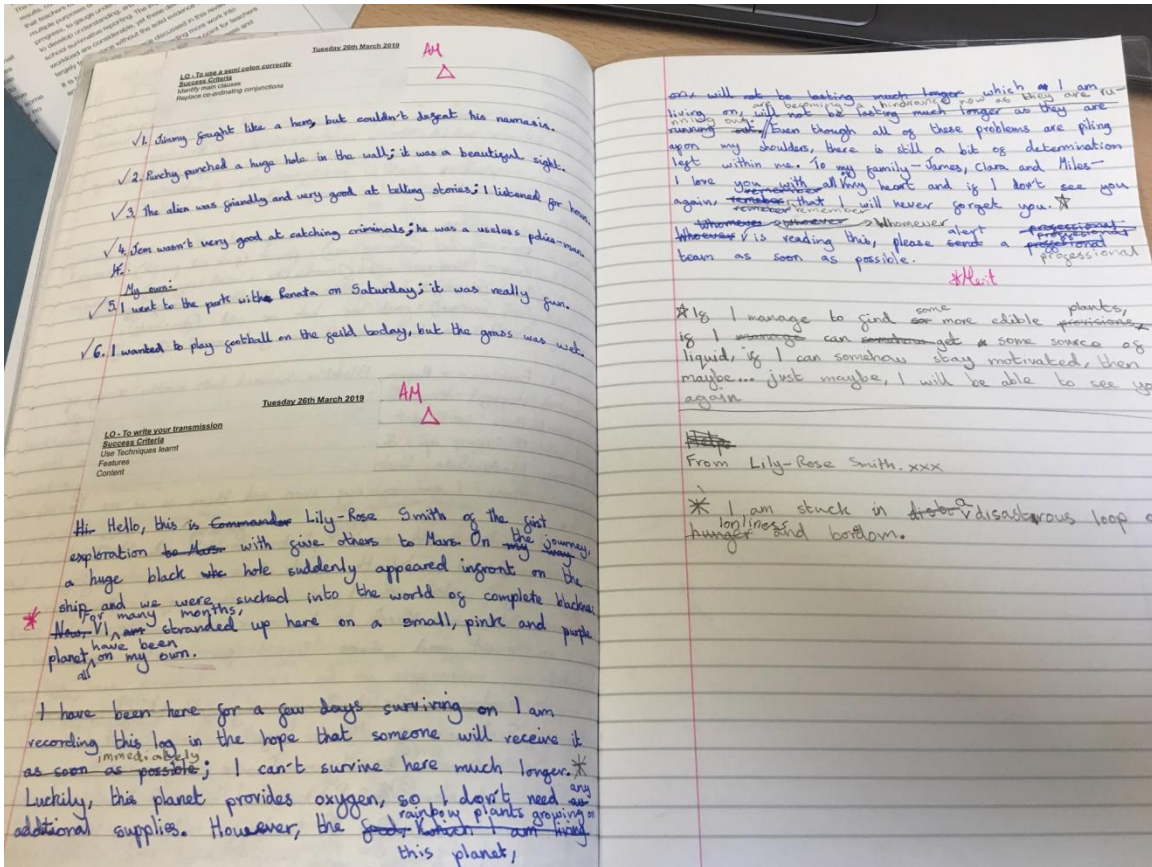 Tuesday 26th March 2019
AM
LO - To use a semi colon correctly
Success Criteria
Identify main clauses
Replace co-ordinating conjunctions
✓1. Jimmy fought like a hero, but couldn't defeat his namesis.
✓2. Punchy punched a huge hole in the wall; it was a beautiful sight.
✓3. The alien was friendly and very good at telling stories; I listened for hours.
✓4. Jem wasn't very good at catching criminals; he was a useless police-man.
My own:
✓5. I went to the park with Renata on Saturday; it was really fun.
✓6. I wanted to play football on the feild today, but the grass was wet.
Tuesday 26th March 2019
AM
LO - To write your transmission
Success Criteria
Use Techniques learnt
Features
Content
Hi Hello, this is Commander Lily-Rose Smith of the first
exploration to Mars with five others to Mars. On my way the journey,
a huge black hole suddenly appeared infront on the
ship and we were sucked into the world of complete blackness.
* Now, For many months, I am have been stranded up here on a small, pink and purple
planet all on my own.
I have been here for a few days surviving on I am
recording this log in the hope that someone will receive it
as soon as possible immediately; I can't survive here much longer. *
Luckily, this planet provides oxygen, so I don't need any
additional supplies. However, the food, which I am living rainbow plants growing on
this planet,
on, will not be lasting much longer which I am
living on, are becoming a hindrance now as they are ru-
nning out. will not be lasting much longer as they are
running out. // Even though all of these problems are piling
upon my shoulders, there is still a bit of determination
left within me. To my family - James, Clara and Miles -
I love you with all my heart and if I don't see you
again remeber remember that I will never forget you. ☆
Whomever whoever Whomever
Whoever is reading this, please send alert a professional
team as soon as possible.
*Merit
☆ If I manage to find some more edible plants, provisions,
if I manage can somehow get some source of
liquid, if I can somehow stay motivated, then
maybe... just maybe, I will be able to see you
again
Help
From Lily-Rose Smith. xxx
* I am stuck in a disastrous loop of
hunger lonliness and bordom.